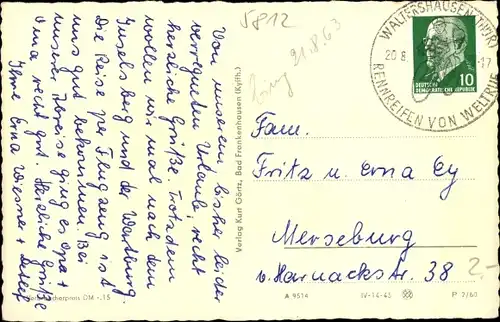 Von unserem, bisher leider
verregneten Urlaub, recht
herzliche Grüße. Trotzdem
wollen wir mal nach dem
Inselsberg und der Wartburg.
Die Reise per Flugzeug ist
uns gut bekommen. Bei
unserer Abreise ging es Opa +
Oma recht gut. Herzliche Grüße
Ihre Erna Wiesner + Detlef
5812
21.8.63
WALTERSHAUSEN (THÜR)
20.8.
-17
RENNREIFEN VON WELTRUF
10
DEUTSCHE
DEMOKRATISCHE REPUBLIK
Verlag Kurt Görtz, Bad Frankenhausen (Kyffh.)
Fam.
Fritz u. Erna Ey
Merseburg
v. Harnackstr. 38
2.-
A 9514 IV-14-45 P 7/60